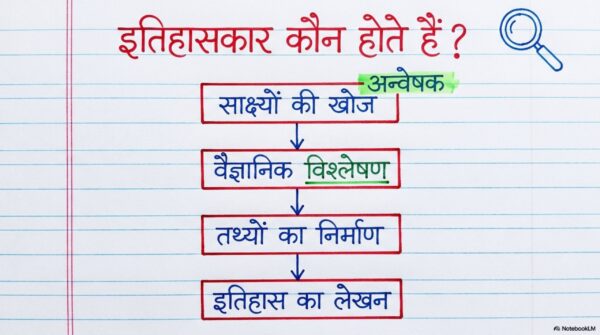 इतिहासकार कौन होते हैं ?
अन्वेषक
साक्ष्यों की खोज
वैज्ञानिक विश्लेषण
तथ्यों का निर्माण
इतिहास का लेखन
NotebookLM